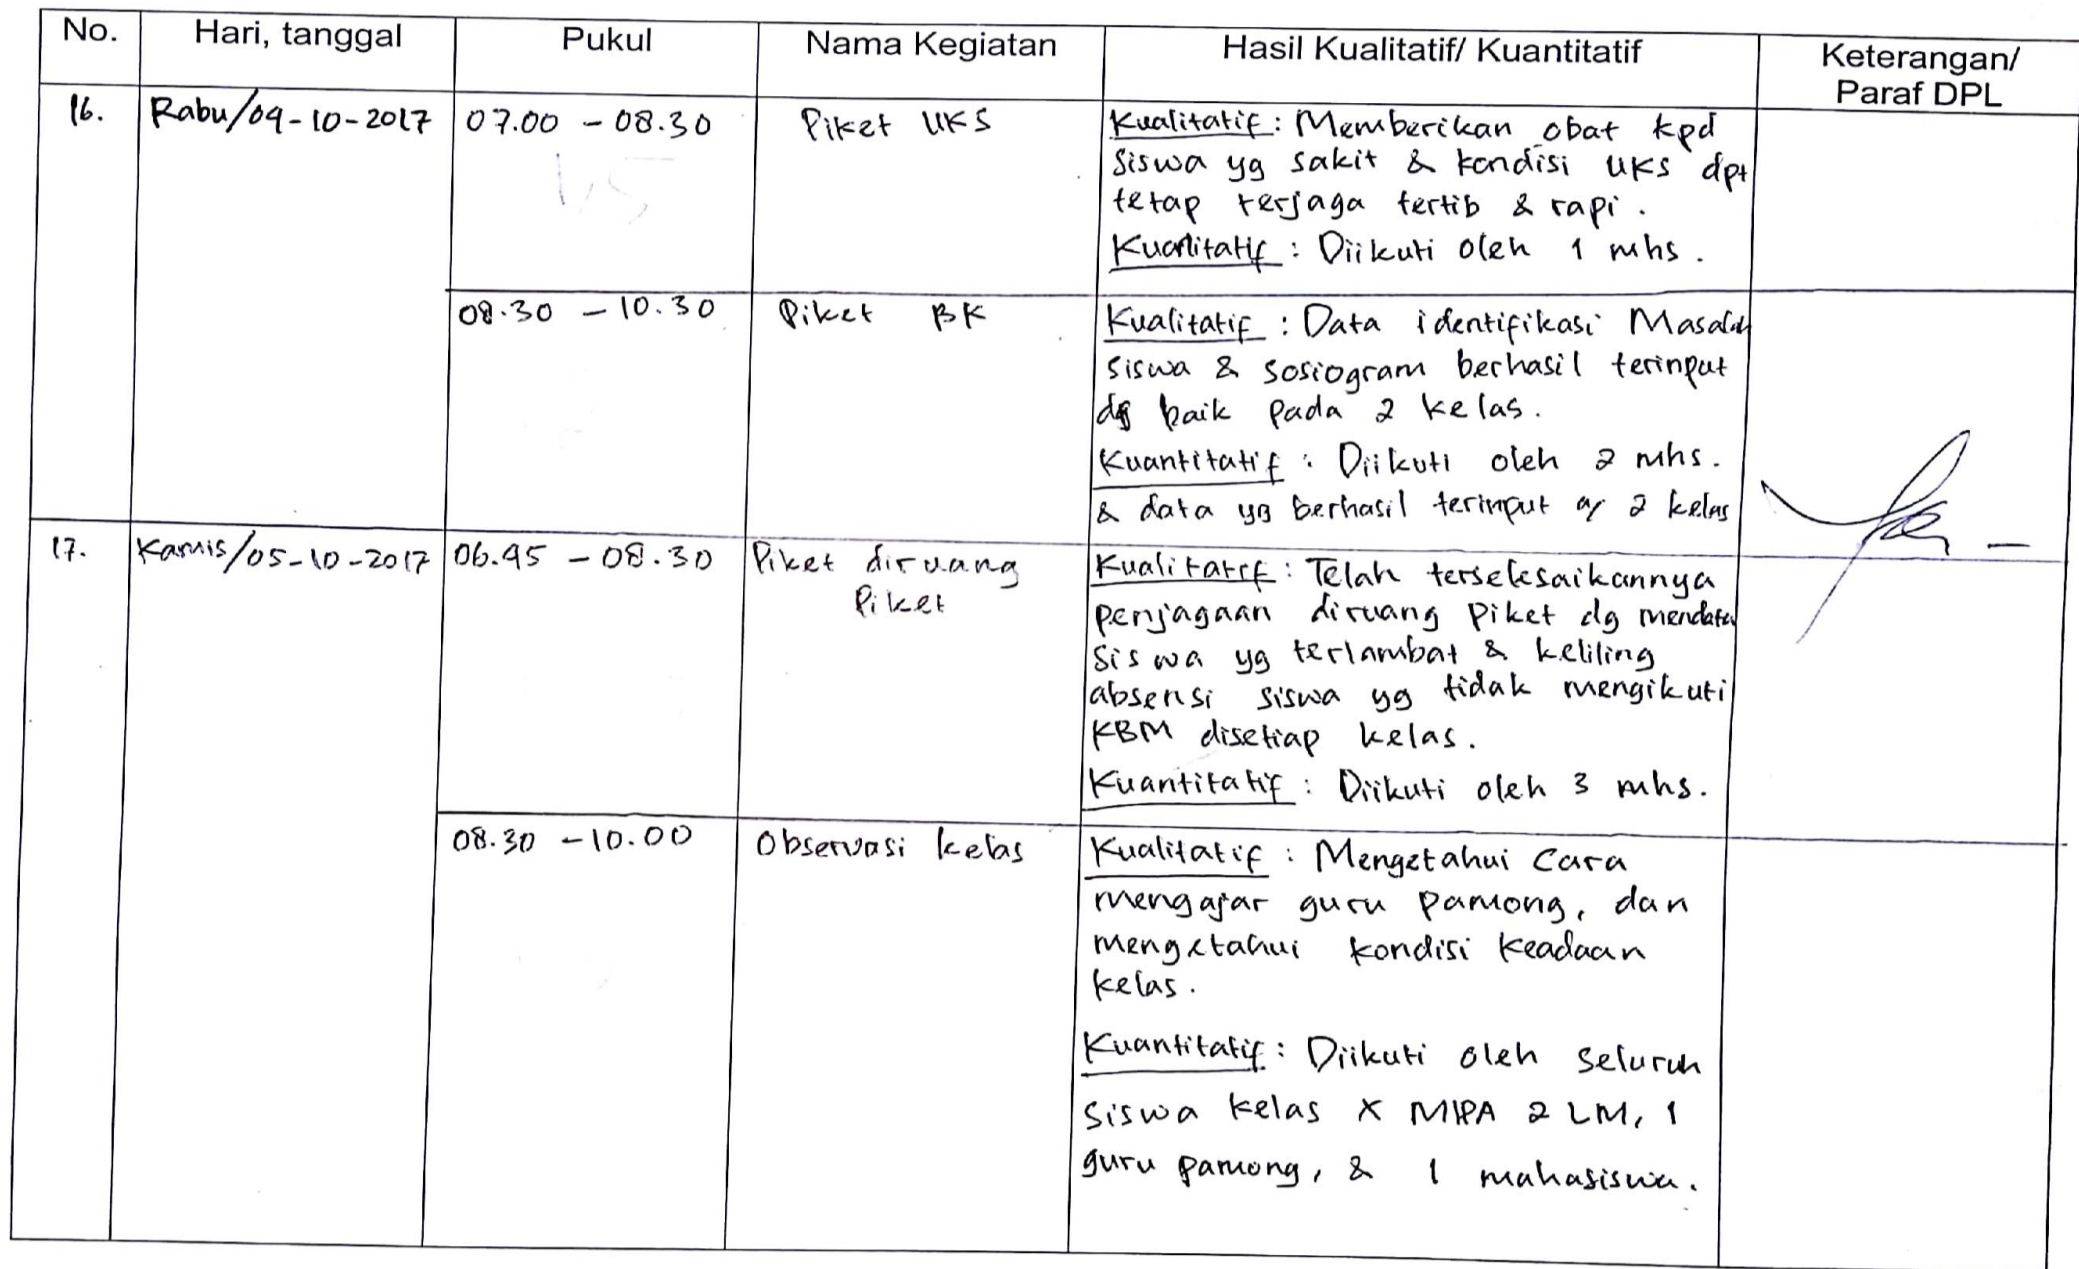 No. Hari, tanggal Pukul Nama Kegiatan Hasil Kualitatif/ Kuantitatif Keterangan/
Paraf DPL
16. Rabu/04-10-2017 07.00 - 08.30 Piket UKS Kualitatif : Memberikan obat kpd
siswa yg sakit & kondisi UKS dpt
tetap terjaga tertib & rapi.
Kuantitatif : Diikuti oleh 1 mhs.
08.30 - 10.30 Piket BK Kualitatif : Data identifikasi Masalah
siswa & sosiogram berhasil terinput
dg baik pada 2 kelas.
Kuantitatif : Diikuti oleh 2 mhs.
& data yg berhasil terinput 2 kelas
17. Kamis/05-10-2017 06.45 - 08.30 Piket diruang
Piket
Kualitatif : Telah terselesaikannya
penjagaan diruang Piket dg mendata
siswa yg terlambat & keliling
absensi siswa yg tidak mengikuti
KBM disetiap kelas.
Kuantitatif : Diikuti oleh 3 mhs.
08.30 - 10.00 Observasi kelas Kualitatif : Mengetahui Cara
mengajar guru pamong, dan
mengetahui kondisi keadaan
kelas.
Kuantitatif : Diikuti oleh seluruh
siswa kelas X MIPA 2 LM, 1
guru pamong, & 1 mahasiswa.